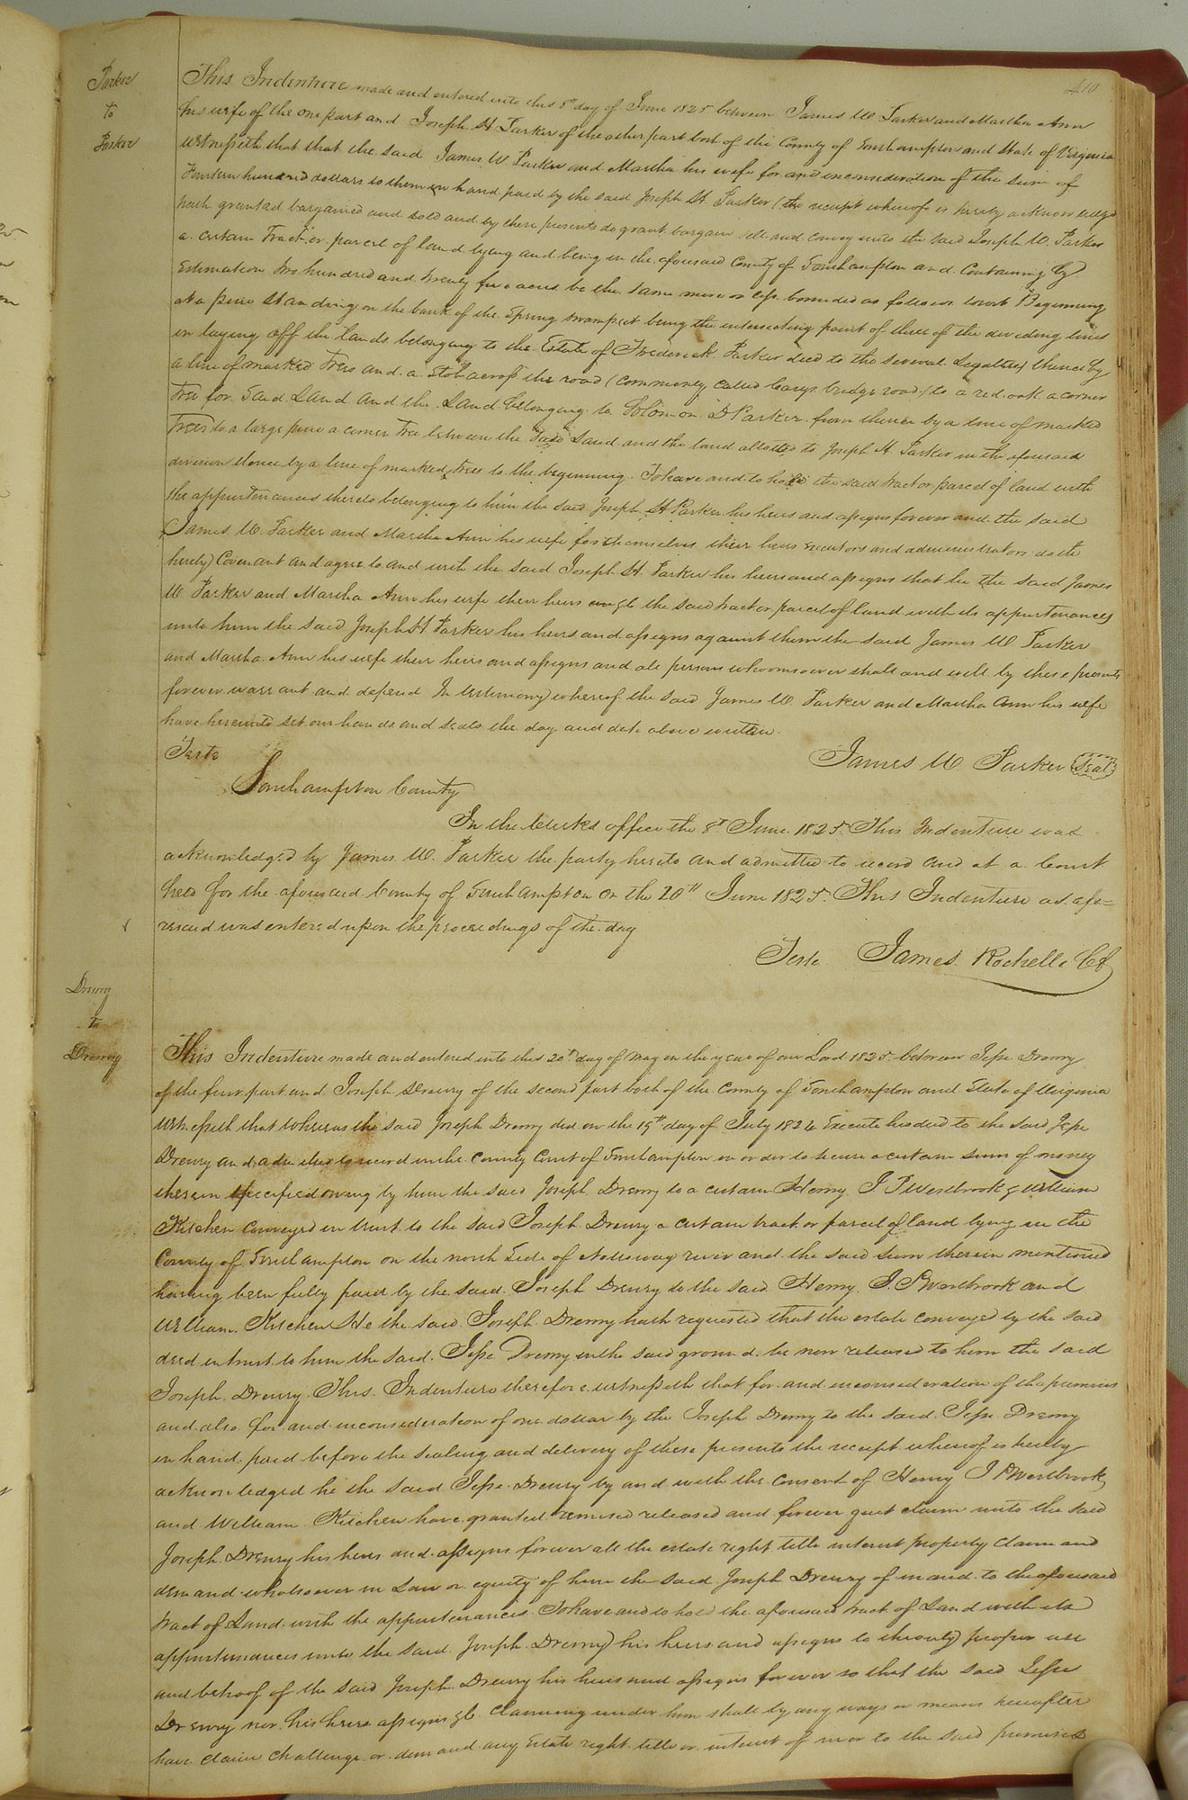 410
Parker
to
Parker
This Indenture made and entered into this 8th day of June 1825 between James W Parker and Martha Ann
his wife of the one part and Joseph H Parker of the other part both of the County of Southampton and State of Virginia
Witnesseth that that the said James W Parker and Martha his wife for and inconsideration of the sum of
Fourteen hundred dollars to them in hand paid by the said Joseph H Parker (the receipt whereof is hereby acknowledged
hath granted bargained and sold and by these presents do grant bargain sell and convey unto the said Joseph W. Parker
a certain Tract or parcel of land lying and being in the aforesaid County of Southampton and Containing by
Estimation two hundred and twenty five acres be the same more or less bounded as follows towit Beginning
at a pine standing on the bank of the Spring swamp it being the intersecting point of three of the dividing lines
in laying off the lands belonging to the Estate of Frederick Parker decd to the several Legatees thence by
a line of marked Trees and a Stob across the road (commonly called Careys bridge road) to a red oak a corner
Tree for said Land and the Land belonging to Solomon D Parker from thence by a line of marked
Trees to a large pine a corner Tree between the said Land and the land allotted to Joseph H Parker in the aforesaid
division thence by a line of marked trees to the beginning. To have and to hold the said tract or parcel of land with
the appurtenances thereto belonging to him the said Joseph H Parker his heirs and assigns forever and the said
James W. Parker and Martha Ann his wife for themselves their heirs executors and administrators doth
hereby Covenant and agree to and with the said Joseph H. Parker his heirs and assigns that he the said James
W Parker and Martha Ann his wife their heirs the said tract or parcel of land with its appurtenances
unto him the said Joseph H Parker his heirs and assigns against them the said James W Parker
and Martha Ann his wife their heirs and assigns and all persons whomsoever shall and will by these presents
forever warrant and defend In testimony whereof the said James W. Parker and Martha Ann his wife
have hereunto set our hands and seals the day and date above written
Teste
James W. Parker Seal
Southampton County
In the Clerks office the 8th June 1825. This Indenture was
acknowledged by James W. Parker the party hereto and admitted to record and at a Court
held for the aforesaid County of Southampton on the 20th June 1825. This Indenture as afo=
resaid was entered upon the proceedings of the day
Teste James Rochelle CC
Drewry
to
Drewry
This Indenture made and entered into this 20th day of May in the year of our Lord 1825 between Jesse Drewry
of the first part and Joseph Drewry of the second part both of the County of Southampton and State of Virginia
Witnesseth that whereas the said Joseph Drewry did on the 19th day of July 1824 Execute his deed to the said Jesse
Drewry and admitted to record in the County Court of Southampton in order to secure a certain sum of money
therein specified owing by him the said Joseph Drewry to a certain Henry J P Westbrook & William
Kitchen Conveyed in trust to the said Joseph Drewry a certain tract or parcel of land lying in the
County of Southampton on the north side of Nottoway river and the said sum therein mentioned
having been fully paid by the said Joseph Drewry to the said Henry J. P Westbrook and
William Kitchen He the said Joseph Drewry hath requested that the estate conveyed by the said
deed in trust to him the said Jesse Drewry in the said ground be now released to him the said
Joseph Drewry This Indenture therefore witnesseth that for and inconsideration of the premises
and also for and inconsideration of one dollar by the Joseph Drewry to the said Jesse Drewry
in hand paid before the sealing and delivery of these presents the receipt whereof is hereby
acknowledged he the said Jesse Drewry by and with the consent of Henry J P Westbrook
and William Kitchen have granted remised released and forever quit claim unto the said
Joseph Drewry his heirs and assigns forever all the estate right title interest property claim and
demand whatsoever in Law or equity of him the said Joseph Drewry of in and to the aforesaid
tract of Land with the appurtenances To have and to hold the aforesaid tract of Land with its
appurtenances unto the said Joseph Drewry his heirs and assigns to the only proper use
and behoof of the said Joseph Drewry his heirs and assigns forever so that the said Jesse
Drewry nor his heirs assigns &c claiming under him shall by any ways or means hereafter
have claim challenge or demand any Estate right title or interest of in or to the said premises